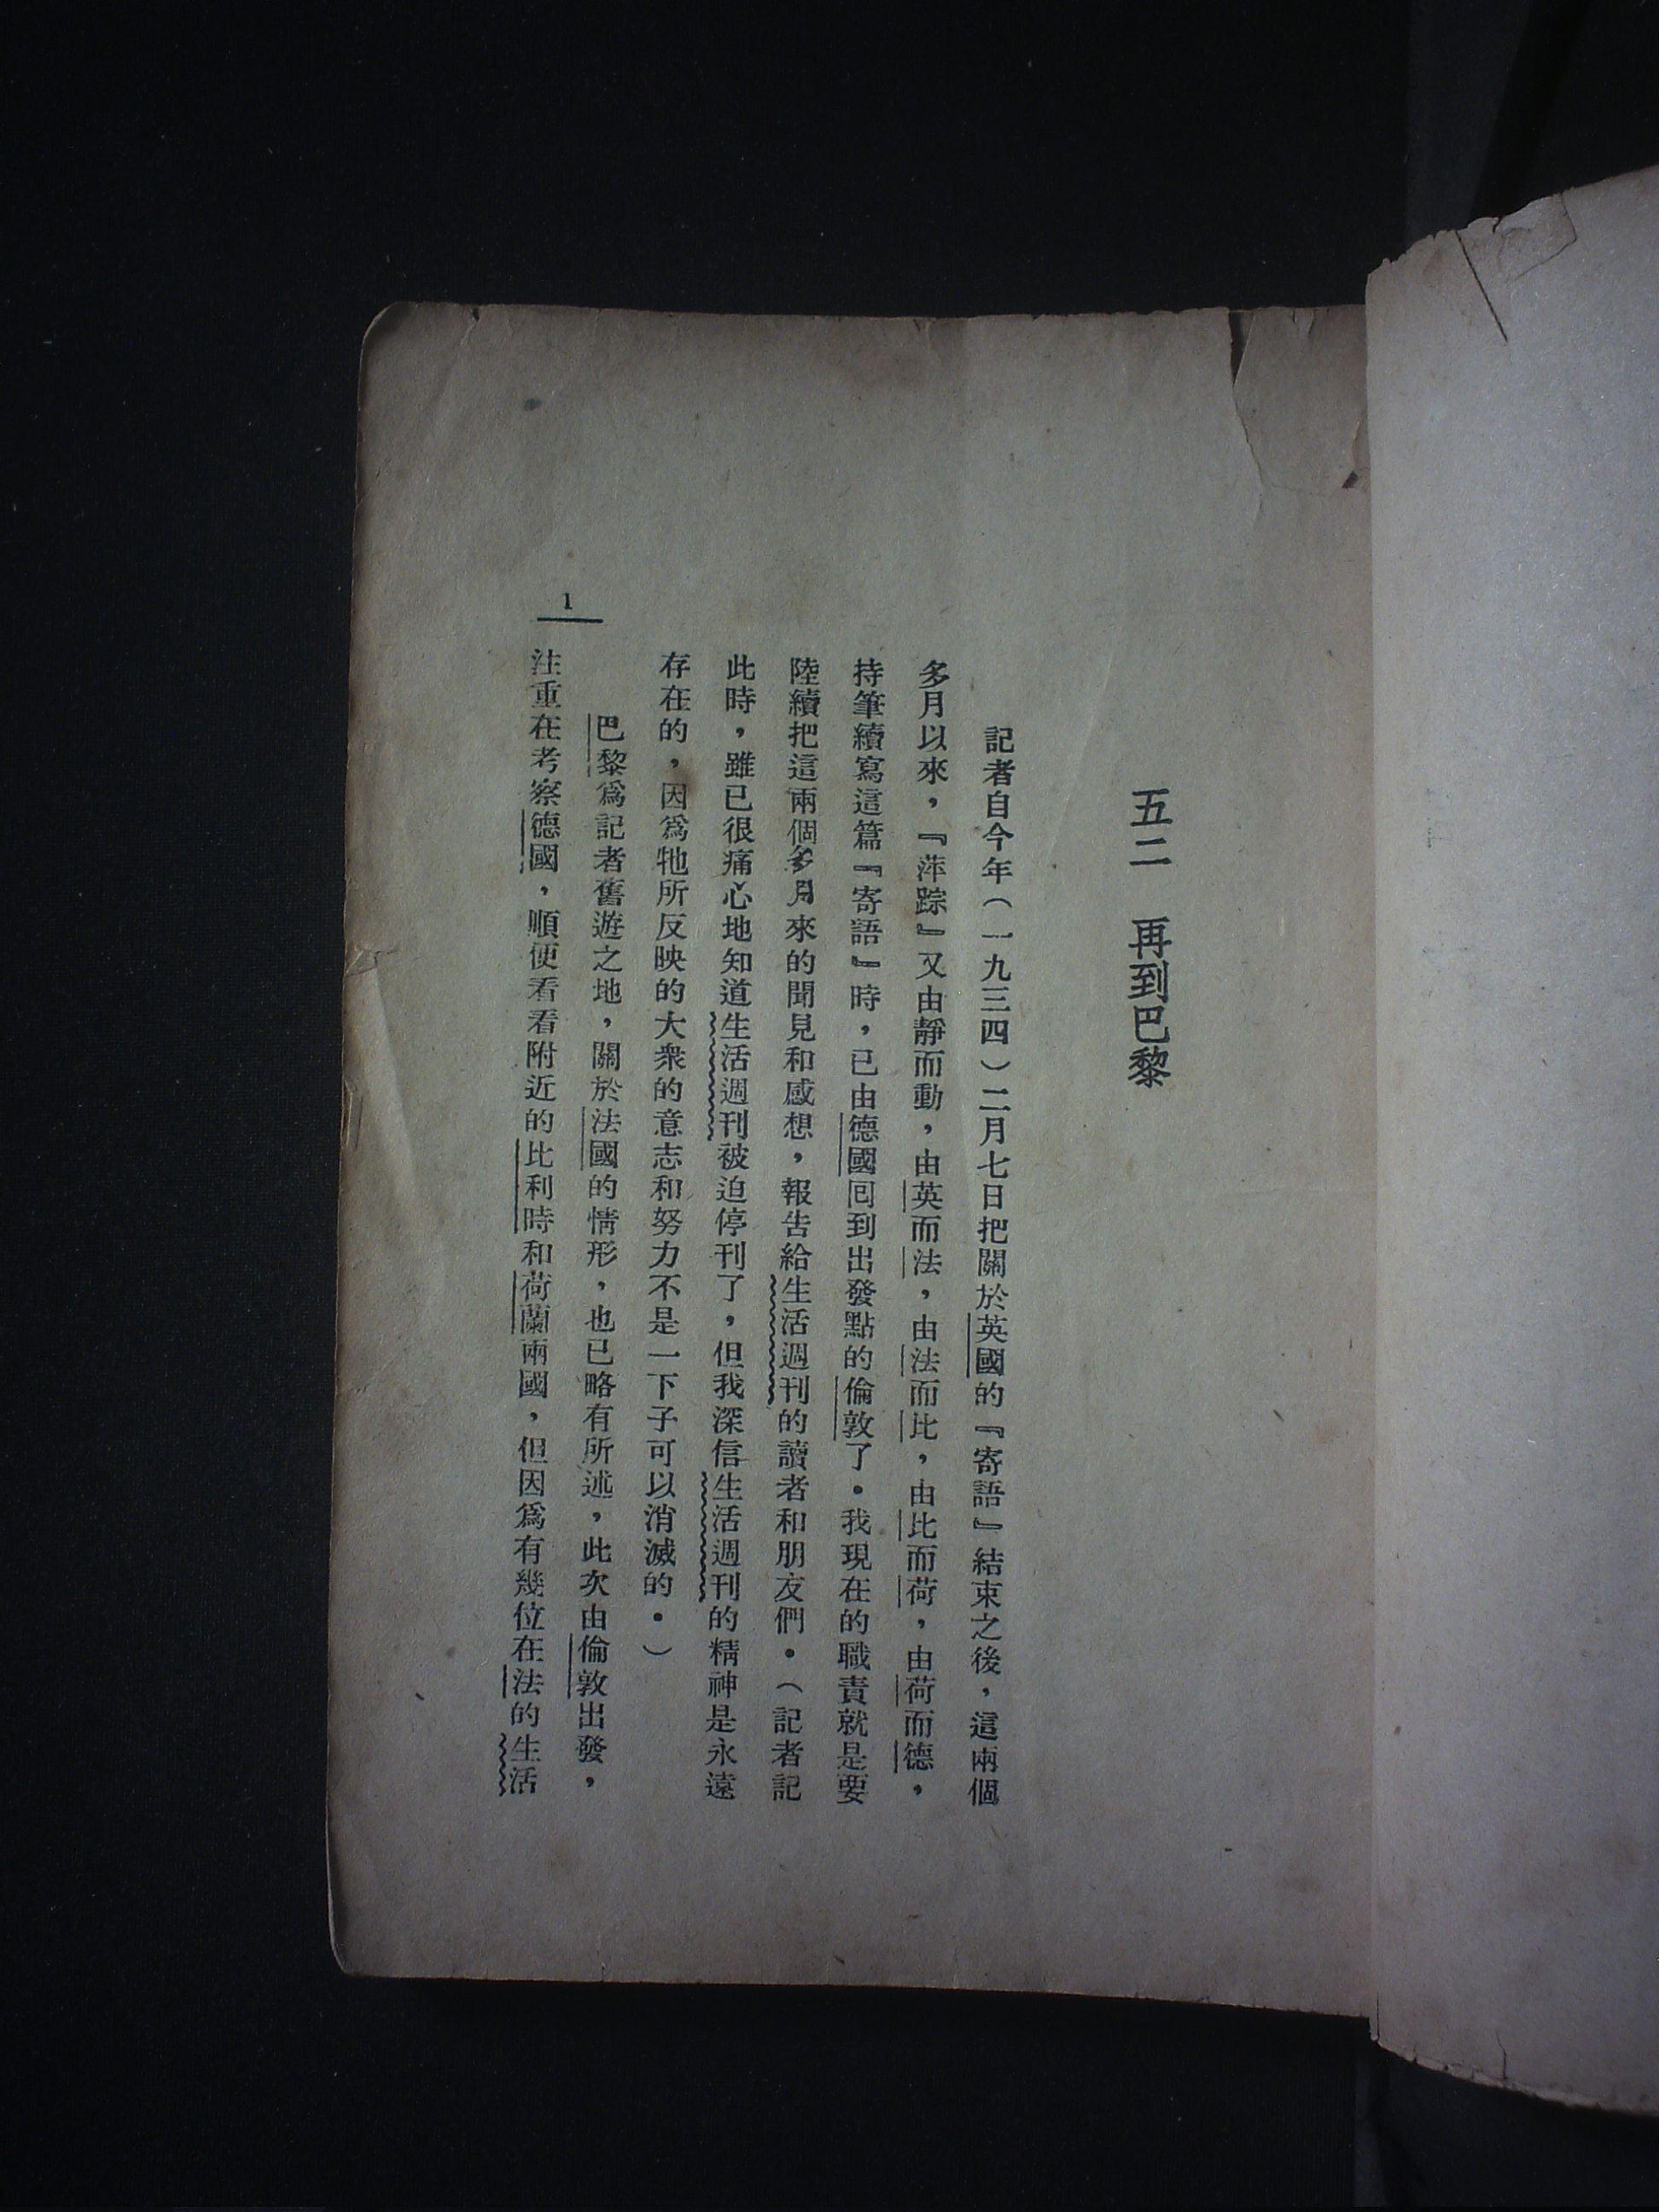 五二　再到巴黎
記者自今年（一九三四）二月七日把關於英國的『寄語』結束之後，這兩個
多月以來，『萍踪』又由靜而動，由英而法，由法而比，由比而荷，由荷而德，
持筆續寫這篇『寄語』時，已由德國囘到出發點的倫敦了。我現在的職責就是要
陸續把這兩個多月來的聞見和感想，報告給生活週刊的讀者和朋友們。（記者記
此時，雖已很痛心地知道生活週刊被迫停刊了，但我深信生活週刊的精神是永遠
存在的，因爲牠所反映的大衆的意志和努力不是一下子可以消滅的。）
巴黎爲記者舊遊之地，關於法國的情形，也已略有所述，此次由倫敦出發，
注重在考察德國，順便看看附近的比利時和荷蘭兩國，但因爲有幾位在法的生活
1